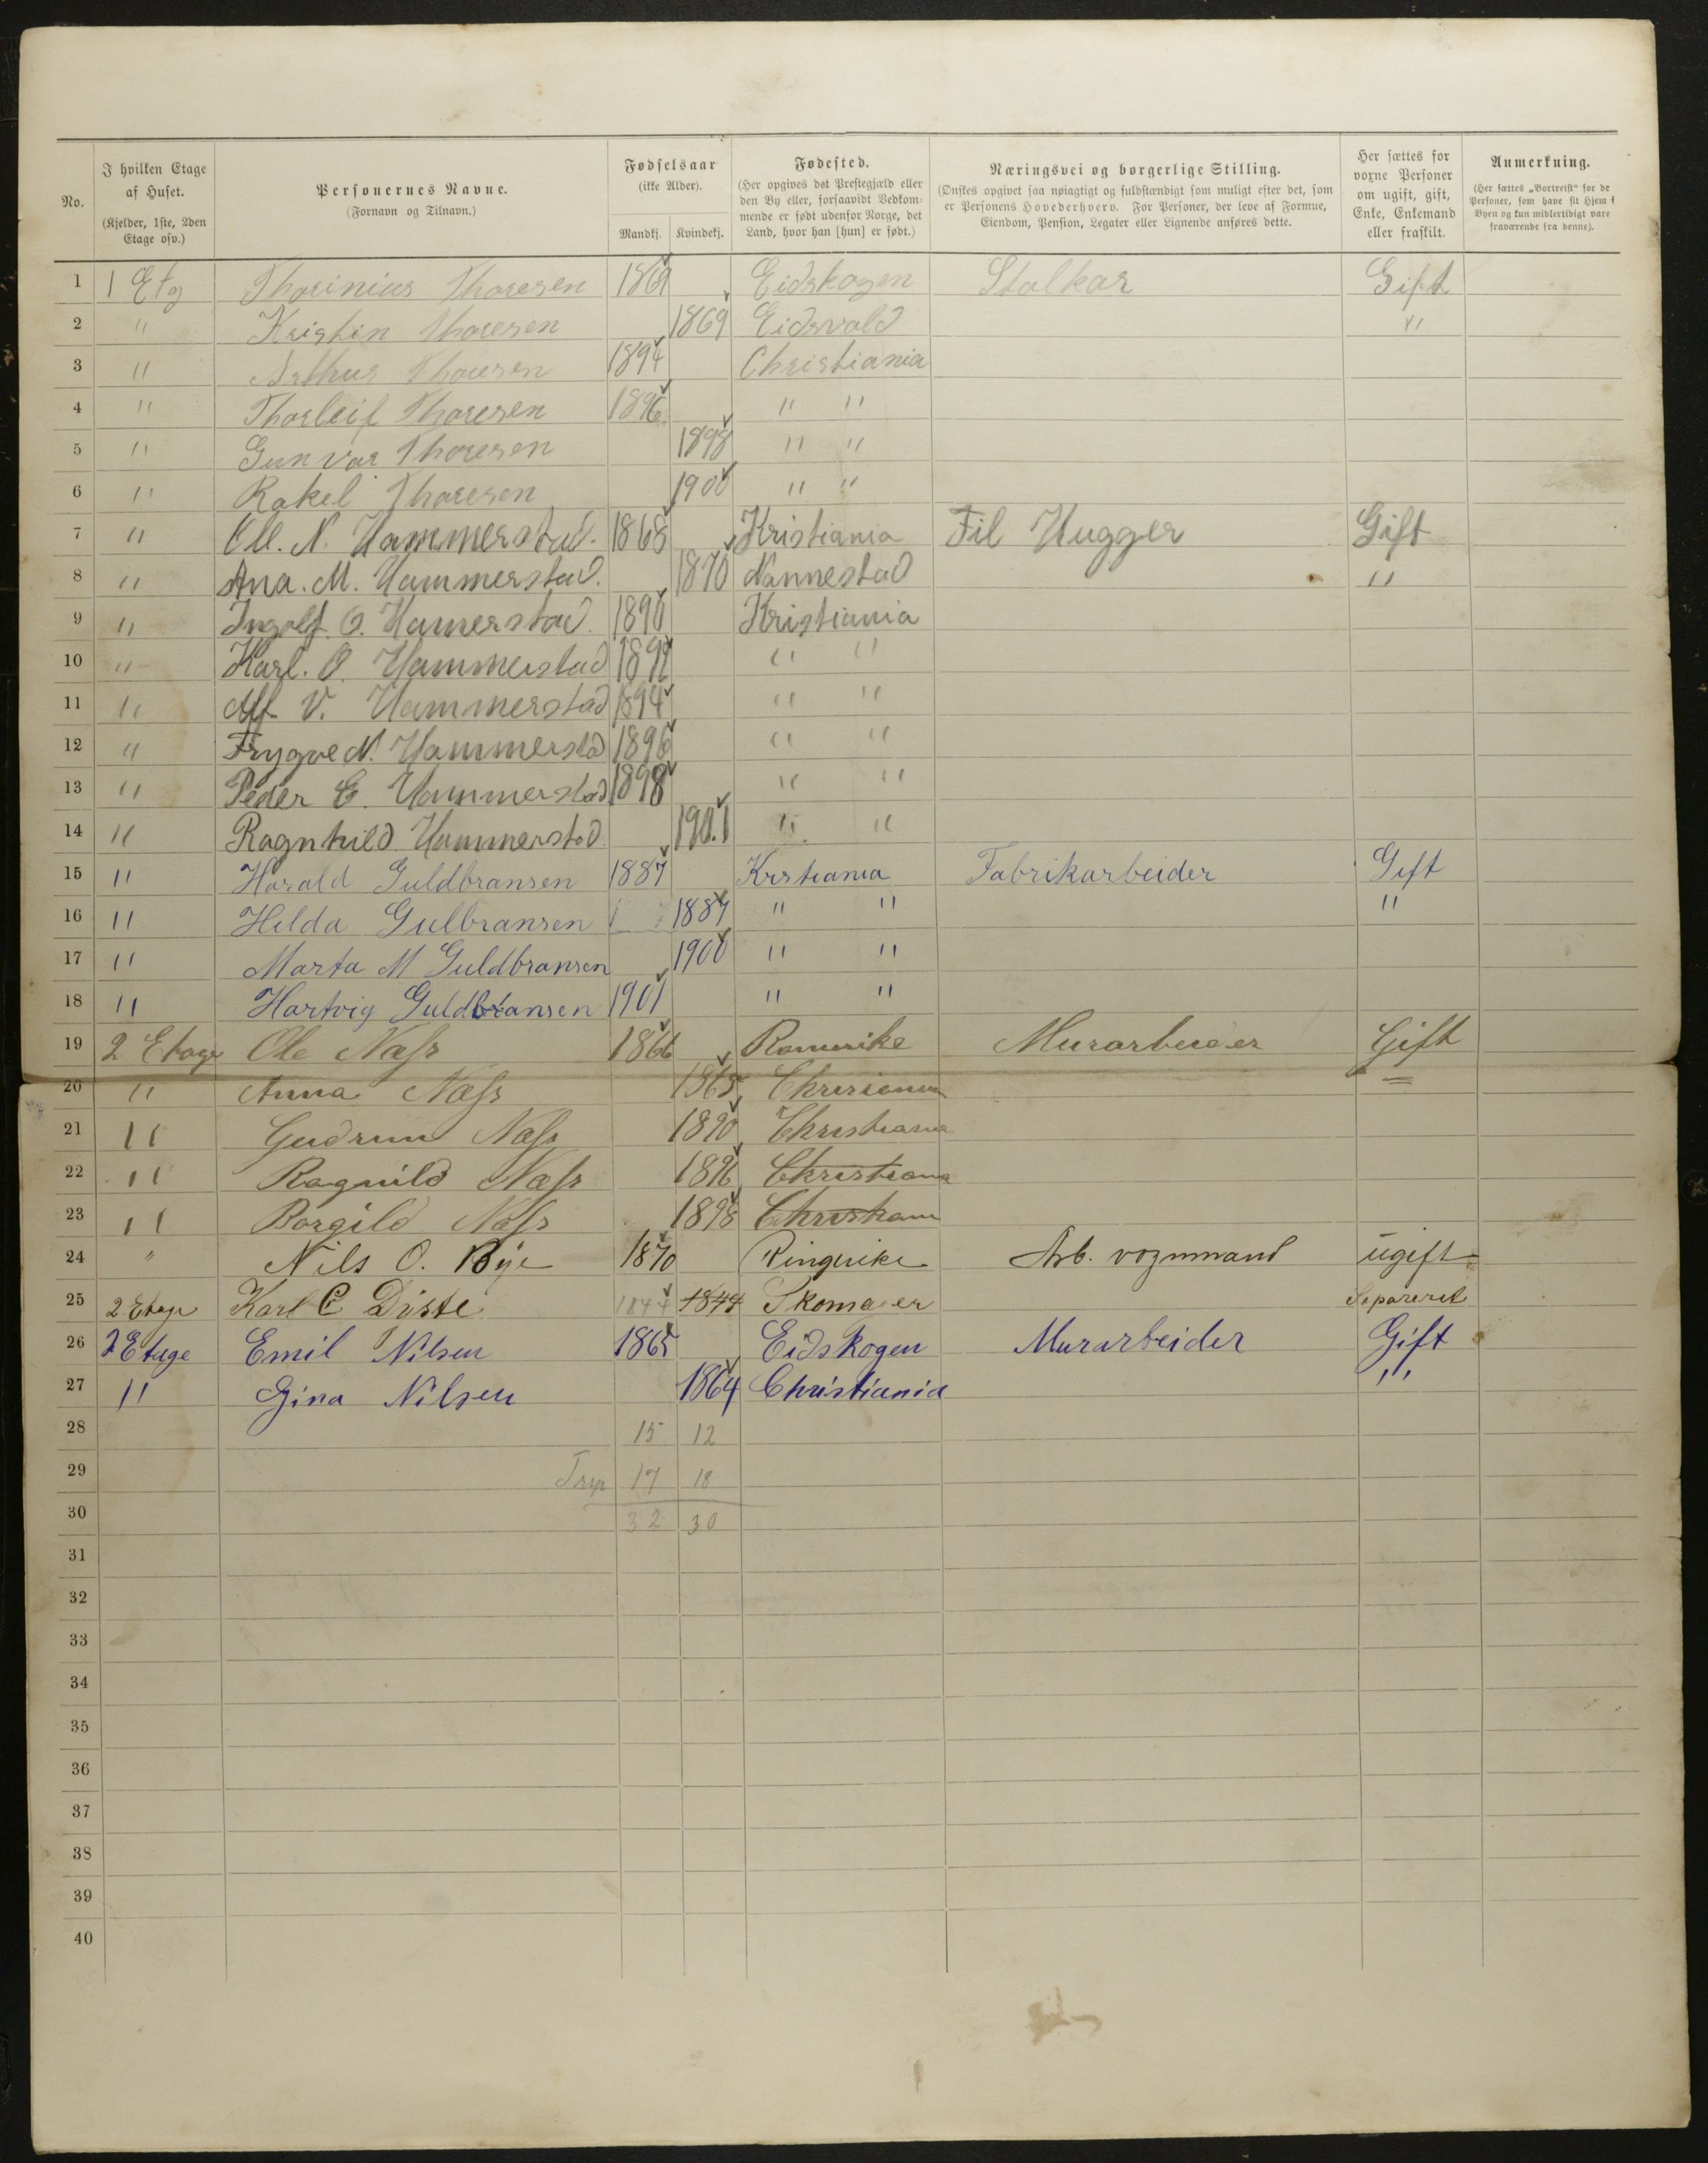 No. | I hvilken Etage af Huset. (Kjelder, 1ste, 2den Etage osv.) | Personernes Navne. (Fornavn og Tilnavn.) | Fødselsaar (ikke Alder). Mandkj. | Kvindekj. | Fødested. (Her opgives det Prestegjæld eller den By eller, forsaavidt Vedkommende er født udenfor Norge, det Land, hvor han [hun] er født.) | Næringsvei og borgerlige Stilling. (Ønskes opgivet saa nøiagtigt og fuldstændigt som muligt efter det, som er Personens Hovederhverv. For Personer, der leve af Formue, Eiendom, Pension, Legater eller Lignende anføres dette. | Her sættes for voxne Personer om ugift, gift, Enke, Enkemand eller fraskilt. | Anmerkning. (Her sættes „Bortreist“ for de Personer, som have sit Hjem i Byen og kun midlertidigt vare fraværende fra denne).
1 1 Etg Thorinius Thoresen 1869 Eidskogen Stalkar Gift
2 " Kristin Thoresen 1869 Eidsvold "
3 " Arthur Thoresen 1894 Christiania
4 " Thorleif Thoresen 1896 " "
5 " Gunvor Thoresen 1898 " "
6 " Rakel Thoresen 1900 " "
7 " Ole. N. Hammerstad. 1868 Kristiania Fil Hugger Gift
8 " Ana. M. Hammerstad. 1870 Nannestad "
9 " Ingolf O. Hamerstad. 1890 Kristiania
10 " Karl. O. Hammerstad 1892 " "
11 " Alf V. Hammerstad 1894 " "
12 " Trygve N. Hammerstad 1896 " "
13 " Peder E. Hammerstad 1898 " "
14 " Ragnhild Hammerstad 1901 " "
15 " Harald Guldbransen 1887 Kristiania Fabrikarbeider Gift
16 " Hilda Gulbransen 1887 " " "
17 " Marta M Guldbransen 1900 " "
18 " Hartvig Guldbransen 1901 " "
19 2 Etage Ole Næss 1866 Romerike Murarbeider Gift
20 " Anna Næss 1865 "
21 " Gudrun Næss 1890 Christiania
22 " Ragnild Næss 1896 Christiania
23 " Borgild Næss 1898
24 " Nils O. Bye 1870 Ringerike Arb. vognmand ugift
25 2 Etage Karl C Diste 1844 1844 Skomager Separeret
26 2 Etage Emil Nilsen 1865 Eidskogen Murarbeider Gift
27 " Gina Nilsen 1864 Christiania "
28 15 12
29 Trsp 17 18
30 32 30
31
32
33
34
35
36
37
38
39
40